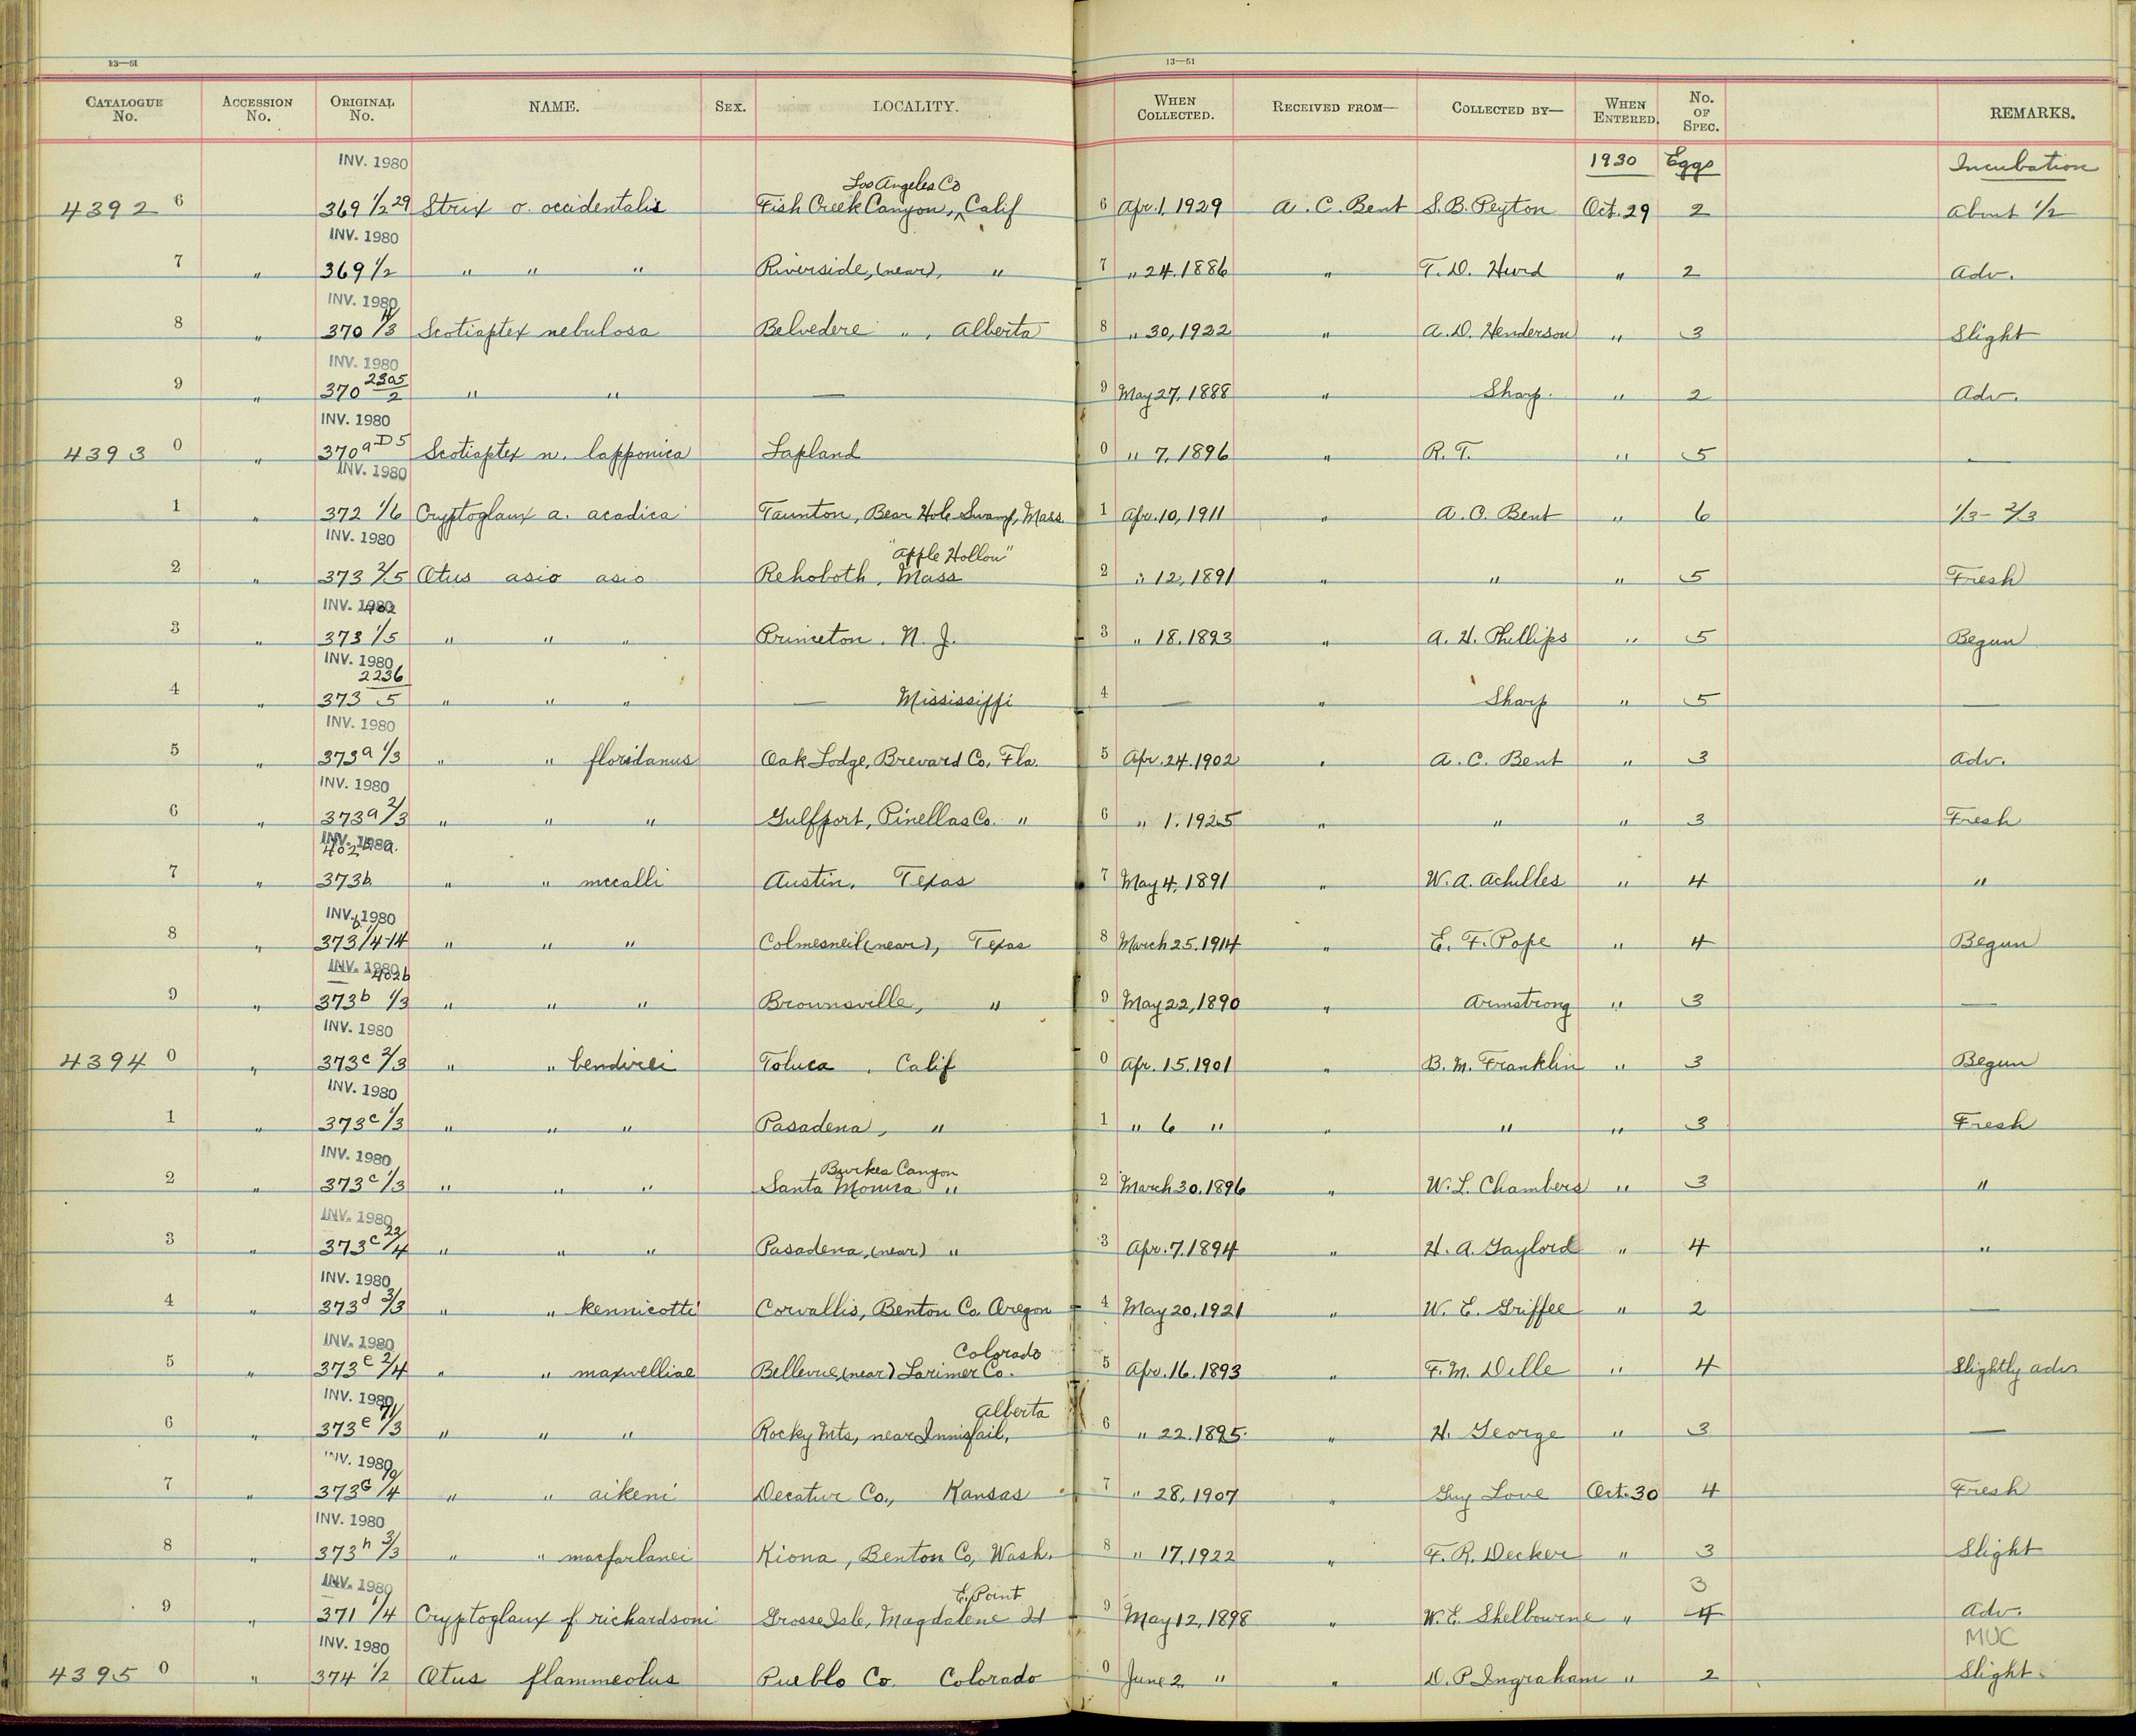 13—51 13—51
CATALOGUE No. ACCESSION No. ORIGINAL No. NAME. SEX. LOCALITY. WHEN COLLECTED. RECEIVED FROM— COLLECTED BY— WHEN ENTERED. No. OF SPEC. REMARKS.
INV. 1980 1930 Eggs Incubation
Los Angeles Co
4392 6 369 1/2 29 Strix o. occidentalis Fish Creek Canyon, ^ Calif 6 Apr. 1, 1929 A. C. Bent S. B. Peyton Oct. 29 2 About 1/2
INV. 1980
7 " 369 1/2 " " " Riverside, (near), " 7 " 24. 1886 " T. D. Hurd " 2 Adv.
INV. 1980
8 " 370 /3 Scotiaptex nebulosa Belvedere " , Alberta 8 " 30, 1922 " A. D. Henderson " 3 Slight
INV. 1980
9 " 370 2305/2 " " — 9 May 27, 1888 " Sharp. " 2 Adv.
INV. 1980
4393 0 " 370a D5 Scotiaptex n. lapponica Lapland 0 " 7, 1896 " R. T. " 5 —
INV. 1980
1 " 372 1/6 Cryptoglaux a. acadica Taunton, Bear Hole Swamp, Mass. 1 Apr. 10, 1911 " A. C. Bent " 6 1/3 - 2/3
INV. 1980 "Apple Hollow"
2 " 373 2/5 Otus asio asio Rehoboth, Mass 2 " 12, 1891 " " " 5 Fresh
INV. 1980 402
3 " 373 1/5 " " " Princeton. N. J. 3 " 18. 1893 " A. H. Phillips " 5 Begun
INV. 1980
4 " 373 2236/5 " " " — Mississippi 4 — " Sharp " 5 —
INV. 1980
5 " 373a 1/3 " " floridanus Oak Lodge, Brevard Co. Fla. 5 Apr. 24. 1902 " A. C. Bent " 3 Adv.
INV. 1980
6 " 373a 2/3 " " " Gulfport, Pinellas Co. " 6 " 1. 1925 " " " 3 Fresh
INV. 1980
7 " 373b. " " mccalli Austin, Texas 7 May 4, 1891 " W. A. Achilles " 4 "
INV. 1980
8 " 373b. 1/4-14 " " " Colmesneil (near), Texas 8 March 25. 1914 " E. F. Pope " 4 Begun
INV. 1980 402b
9 " 373b 1/3 " " " Brownsville, " 9 May 22, 1890 " Armstrong " 3 —
INV. 1980
4394 0 " 373c 2/3 " " bendirei Toluca, Calif 0 Apr. 15. 1901 " B. M. Franklin " 3 Begun
INV. 1980
1 " 373c 1/3 " " " Pasadena, " 1 " 6 " " " " 3 Fresh
INV. 1980 Burkes Canyon
2 " 373c 1/3 " " " Santa Monica " 2 March 30. 1896 " W. L. Chambers " 3 "
INV. 1980
3 " 373c 22/4 " " " Pasadena, (near) " 3 Apr. 7. 1894 " H. A. Gaylord " 4 "
INV. 1980
4 " 373d 3/3 " " kennicotti Corvallis, Benton Co. Oregon 4 May 20, 1921 " W. E. Griffee " 2 —
INV. 1980 Colorado
5 " 373e 2/4 " " maxwelliae Bellevue, (near) Larimer Co. 5 Apr. 16. 1893 " F. M. Dille " 4 Slightly adv.
INV. 1980 Alberta
6 " 373e 71/3 " " " Rocky Mts, near Innisfail, 6 " 22. 1895. " H. George " 3 —
INV. 1980
7 " 373G 19/4 " " aikeni Decatur Co., Kansas 7 " 28, 1907 " Guy Love Oct. 30 4 Fresh
INV. 1980
8 " 373h 3/3 " " macfarlanei Kiona, Benton Co, Wash. 8 " 17, 1922 " F. R. Decker " 3 Slight
INV. 1980 E. Point 3
9 " 371 1/4 Cryptoglaux f. richardsoni Grosse Isle, Magdalene Is 9 May 12, 1898 " W. E. Shelbourne " 4 Adv.
INV. 1980 MUC
4395 0 " 374 1/2 Otus flammeolus Pueblo Co. Colorado 0 June 2 " " D. P. Ingraham " 2 Slight.